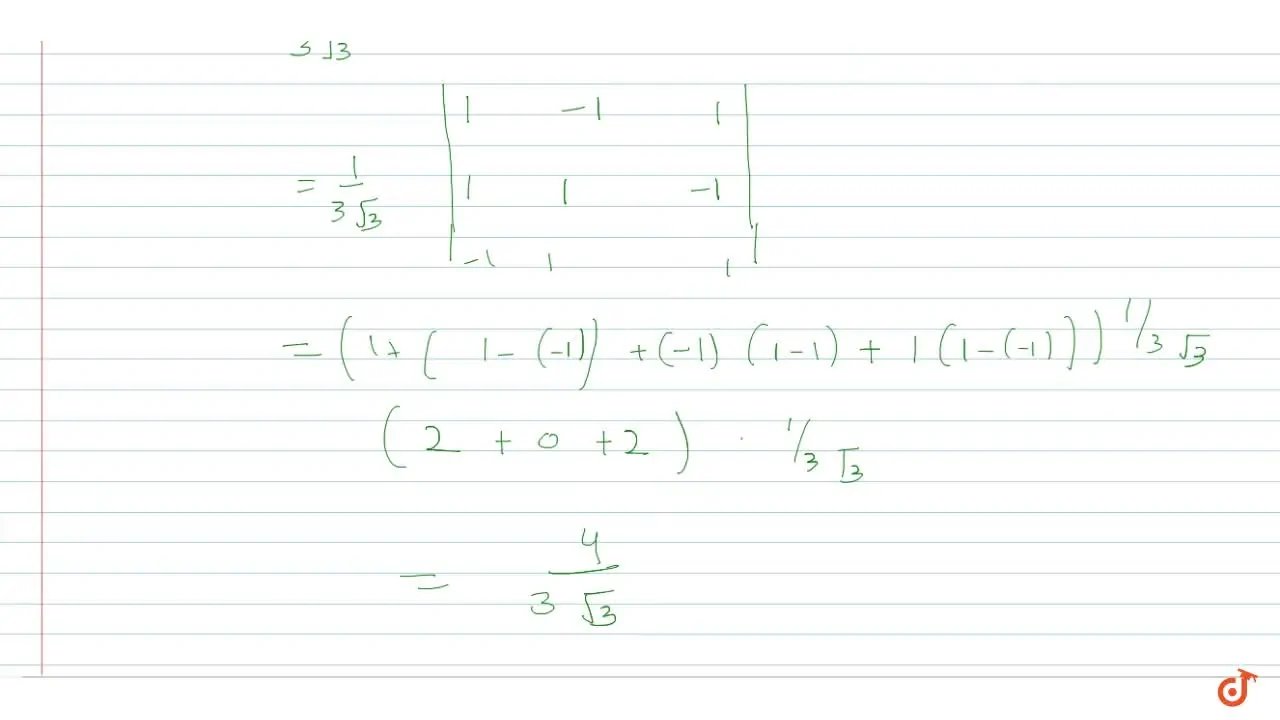 3√3
| 1 -1 1 |
= 1/3√3 | 1 1 -1 |
| -1 1 1 |
= (1+ (1-(-1)) +(-1) (1-1) + 1 (1-(-1))) 1/3√3
(2 + 0 +2) · 1/3√3
= 4/3√3